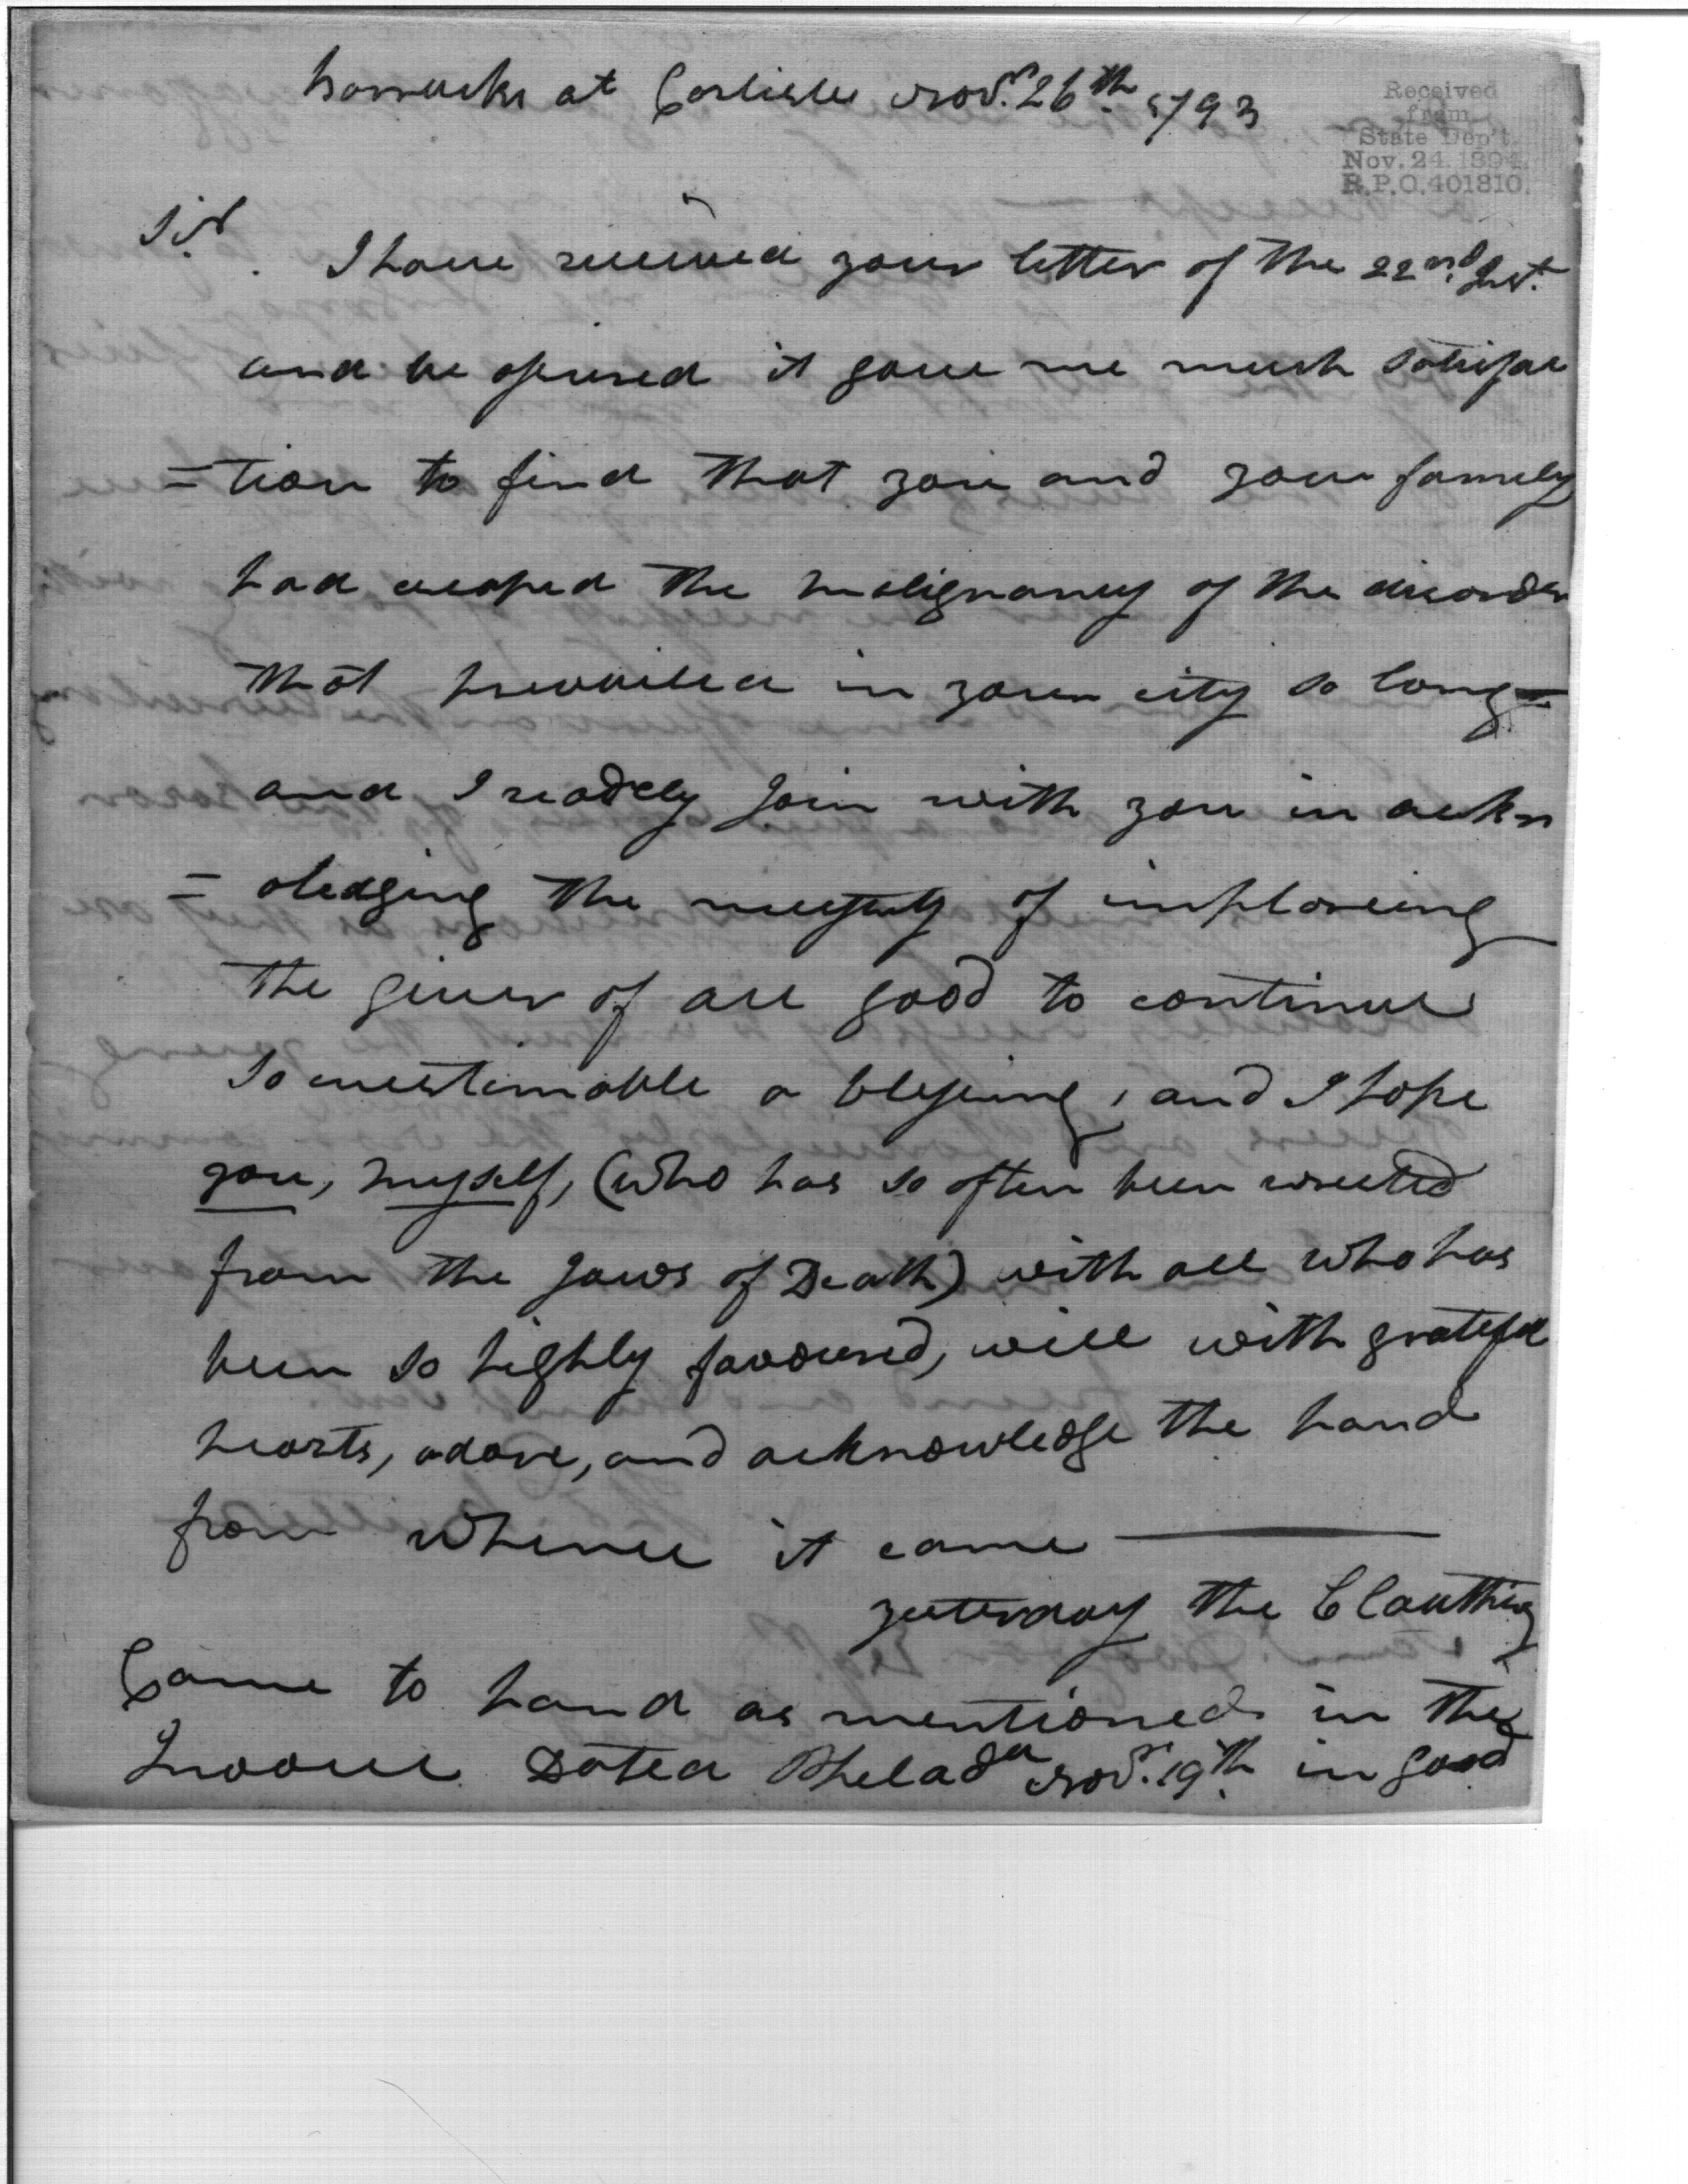 barracks at Carlisle Nov.r 26th. 1793
Received
from
State Dep't.
Nov. 24. 1894.
R.P.O. 401810.
Sir.
I have received your letter of the 22nd. Inst.
and be assured it gave me much satisfac
=tion to find that you and your family
had escaped the malignancy of the disorder
that prevailed in your city so long
and I readely join with you in ackn
=oledging the necessety of imploreing
the giver of all good to continue
so inestimable a blessing, and I hope
you, myself, (who has so often been wrested
from the jaws of Death) with all who has
been so highly favoured, will with grateful
hearts, adore, and acknowledge the hand
from whence it came
yesterday the Cloathing
Came to hand as mentioned in the
Invoice Dated Phelad.a Nov.r 19th. in good